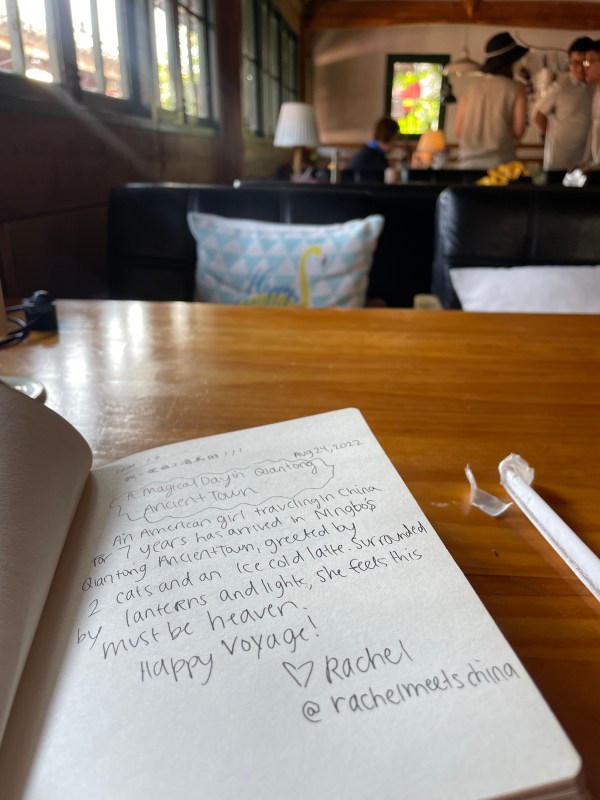 Aug 24, 2022
A magical Day in Qiantong
Ancient Town
An American girl traveling in China
for 7 years has arrived in Ningbo's
Qiantong Ancient Town, greeted by
2 cats and an Ice cold latte. Surrounded
by lanterns and lights, she feels this
must be heaven.
Happy Voyage!
♡ Rachel
@rachelmeetschina
Happy